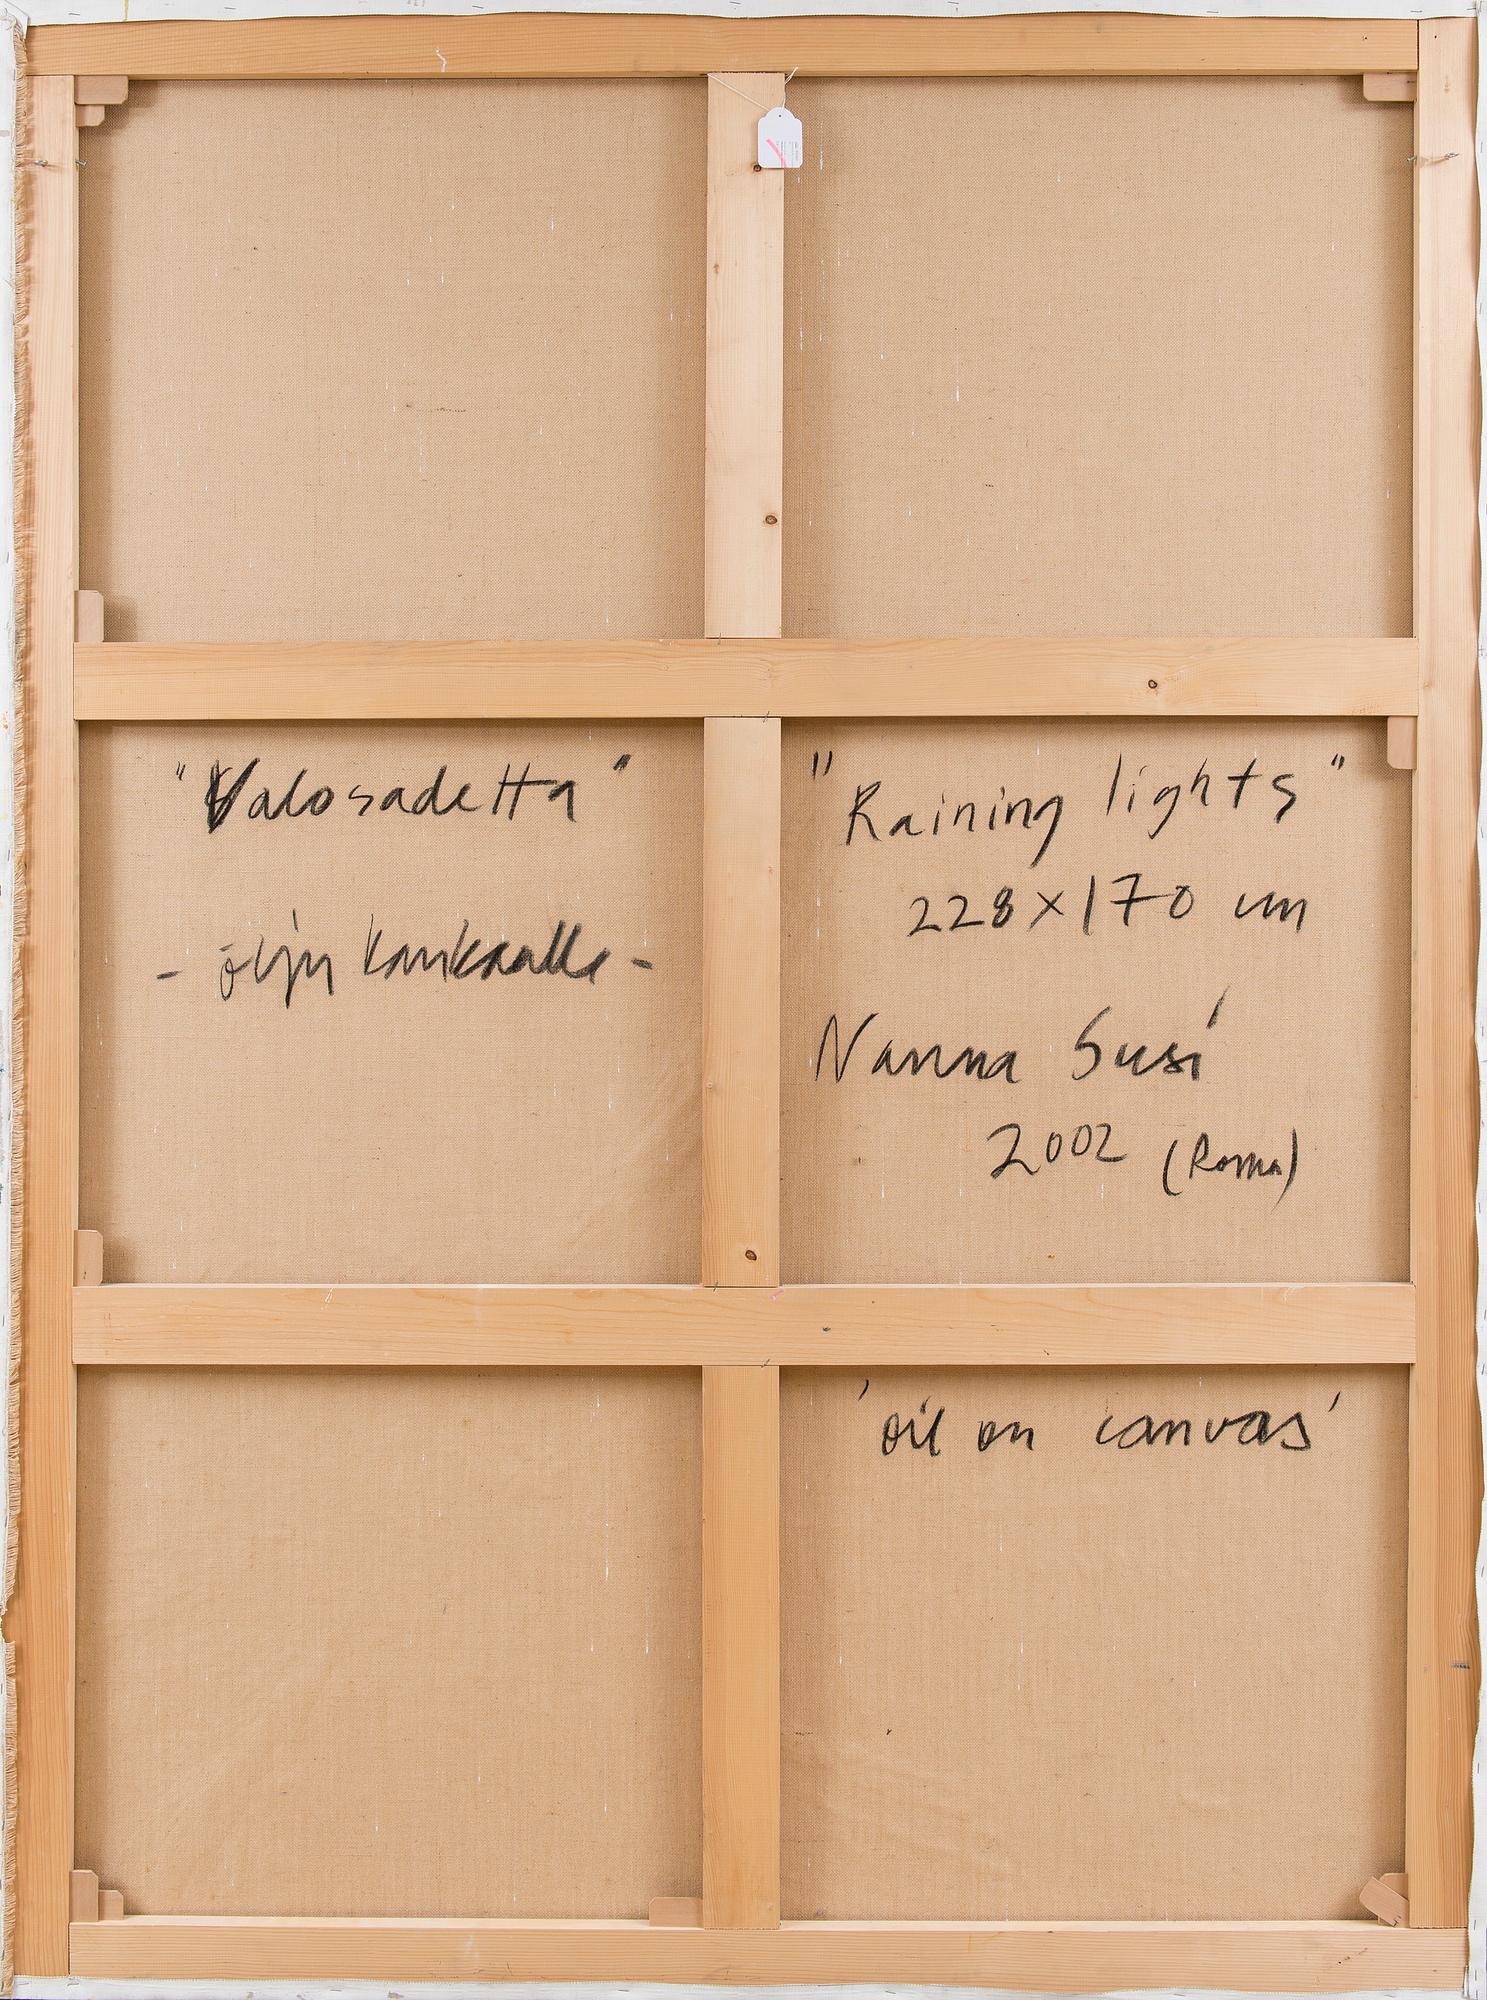 "Valosadetta"
- öljy kankaalle -
"Raining lights"
228x170 cm
Nanna Susi
2002 (Roma)
'oil on canvas'